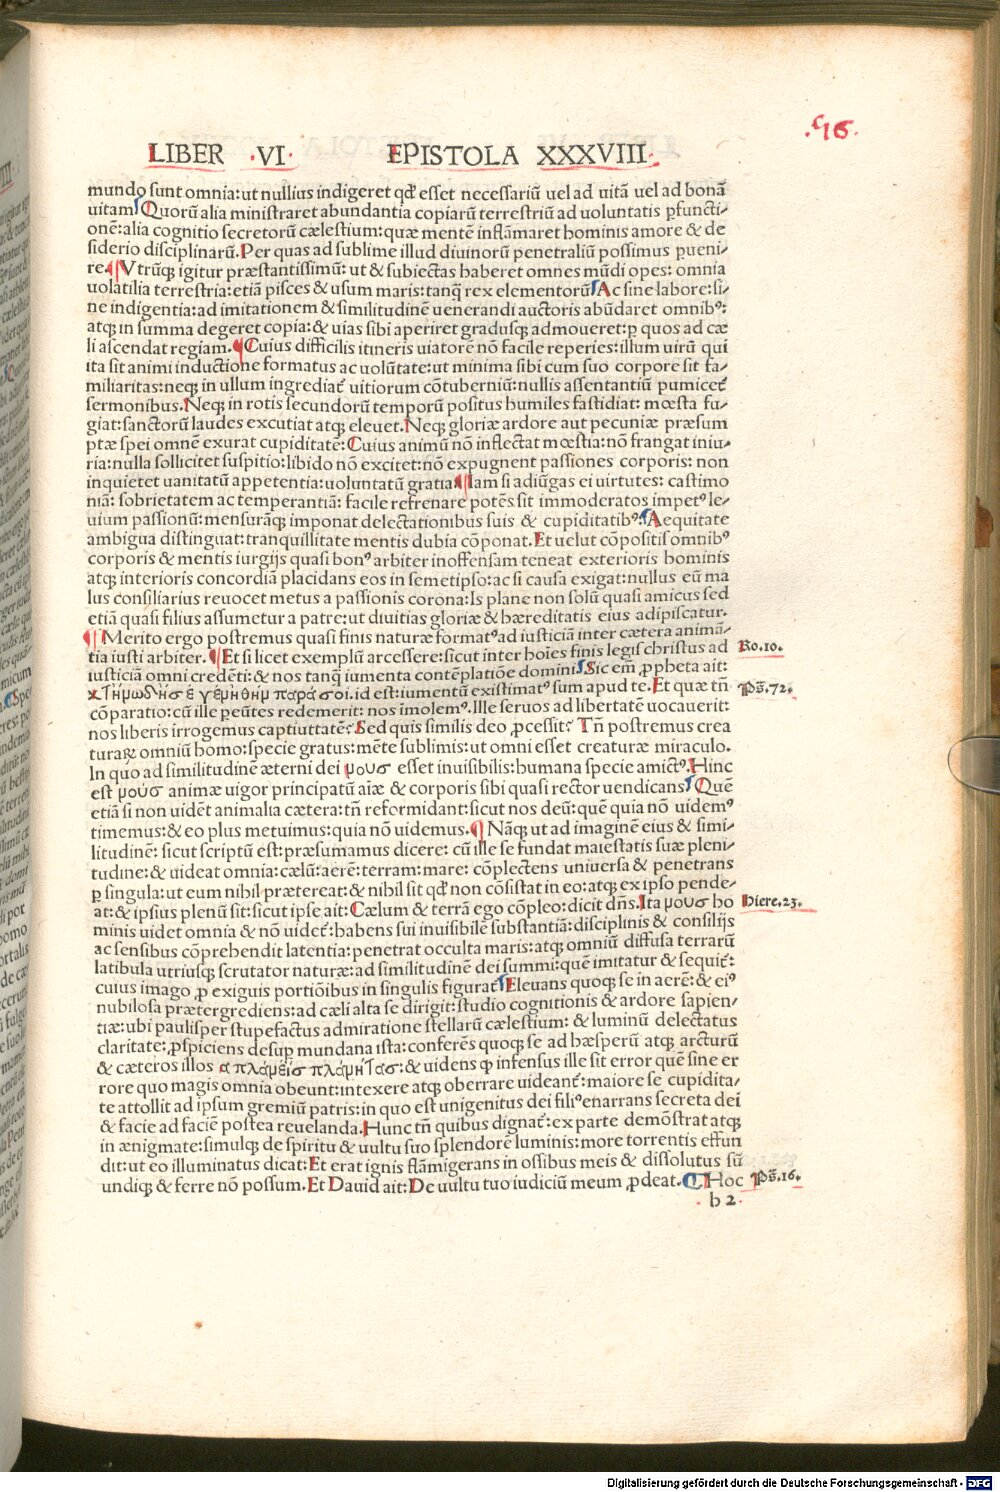 .96.
LIBER .VI. EPISTOLA XXXVIII.
mundo sunt omnia: ut nullius indigeret qđ esset necessariũ uel ad uitã uel ad bonã
uitam Quorũ alia ministraret abundantia copiarũ terrestriũ ad uoluntatis ꝑfuncti-
onẽ: alia cognitio secretorũ cælestium: quæ mentẽ inflãmaret hominis amore & de
siderio disciplinarũ. Per quas ad sublime illud diuinorũ penetraliũ possimus ꝑueni-
re. ¶ Vtrũqꝫ igitur præstantissimũ: ut & subiectas haberet omnes mũdi opes: omnia
uolatilia terrestria: etiã pisces & usum maris: tanq̃ rex elementorũ Ac sine labore: si-
ne indigentia: ad imitationem & similitudinẽ uenerandi auctoris abũdaret omnibꝰ:
atqꝫ in summa degeret copia: & uias sibi aperiret gradusqꝫ admoueret: ꝑ quos ad cæ
li ascendat regiam. ¶ Cuius difficilis itineris uiatorẽ nõ facile reperies: illum uirũ qui
ita sit animi inductione formatus ac uolũtate: ut minima sibi cum suo corpore sit fa-
miliaritas: neqꝫ in ullum ingrediat᷑ uitiorum cõtuberniũ: nullis assentantiũ pumicet᷑
sermonibus. Neqꝫ in rotis secundorũ temporũ positus humiles fastidiat: mœsta fu-
giat: sanctorũ laudes excutiat atqꝫ eleuet. Neqꝫ gloriæ ardore aut pecuniæ præsum
ptæ spei omnẽ exurat cupiditatẽ: Cuius animũ nõ inflectat mœstia: nõ frangat iniu-
ria: nulla sollicitet suspitio: libido nõ excitet: nõ expugnent passiones corporis: non
inquietet uanitatũ appetentia: uoluntatũ gratia ¶ Iam si adiũgas ei uirtutes: castimo
niã: sobrietatem ac temperantiã: facile refrenare potẽs sit immoderatos impetꝰ le-
uium passionũ: mensurãqꝫ imponat delectationibus suis & cupiditatibꝰ. Aequitate
ambigua distinguat: tranquillitate mentis dubia cõponat. Et uelut cõpositis omnibꝰ
corporis & mentis iurgijs quasi bonꝰ arbiter inoffensam teneat exterioris hominis
atqꝫ interioris concordiã placidans eos in semetipso: ac si causa exigat: nullus eũ ma
lus consiliarius reuocet metus a passionis corona: Is plane non solũ quasi amicus sed
etiã quasi filius assumetur a patre: ut diuitias gloriæ & hæreditatis eius adipiscatur.
¶ Merito ergo postremus quasi finis naturæ formatꝰ ad iusticiã inter cætera animã-
tia iusti arbiter. ¶ Et si licet exemplũ arcessere: sicut inter hoĩes finis legis christus ad
Ro.10.
iusticiã omni credẽti: & nos tanq̃ iumenta contẽplatiõe domini Sic em̃ ꝓpheta ait:
κτημωδησ ε γεμηθημ παρά σοι. id est: iumentũ existimatꝰ sum apud te. Et quæ tñ
Ps̃.72.
cõparatio: cũ ille peũtes redemerit: nos ĩmolemꝰ. Ille seruos ad libertatẽ uocauerit:
nos liberis irrogemus captiuttatẽ? Sed quis similis deo ꝓcessit? Tñ postremus crea
turaꝝ omniũ homo: specie gratus: mẽte sublimis: ut omni esset creaturæ miraculo.
In quo ad similitudinẽ æterni dei μουσ esset inuisibilis: humana specie amictꝰ. Hinc
est μουσ animæ uigor principatũ aĩæ & corporis sibi quasi rector uendicans Quẽ
etiã si non uidẽt animalia cætera: tñ reformidant: sicut nos deũ: quẽ quia nõ uidemꝰ
timemus: & eo plus metuimus: quia nõ uidemus. ¶ Nãqꝫ ut ad imaginẽ eius & simi-
litudinẽ: sicut scriptũ est: præsumamus dicere: cũ ille se fundat maiestatis suæ pleni-
tudine: & uideat omnia: cælũ: aerẽ: terram: mare: cõplectens uniuersa & penetrans
ꝑ singula: ut eum nihil prætereat: & nihil sit qđ non cõsistat in eo: atqꝫ ex ipso pende-
at: & ipsius plenũ sit: sicut ipse ait: Cælum & terrã ego cõpleo: dicit dñs. Ita μουσ ho
Hiere.23.
minis uidet omnia & nõ uidet᷑: habens sui inuisibilẽ substantiã: disciplinis & consilijs
ac sensibus cõprehendit latentia: penetrat occulta maris: atqꝫ omniũ diffusa terrarũ
latibula utriusqꝫ scrutator naturæ: ad similitudinẽ dei summi: quẽ imitatur & sequit᷑:
cuius imago ꝓ exiguis portiõibus in singulis figurat᷑ Eleuans quoqꝫ se in aerẽ: & eiꝰ
nubilosa prætergrediens: ad cæli alta se dirigit: studio cognitionis & ardore sapien-
tiæ: ubi paulisper stupefactus admiratione stellarũ cælestium: & luminũ delectatus
claritate: ꝓspiciens desuꝑ mundana ista: conferẽs quoqꝫ se ad hæsperũ atqꝫ arcturũ
& cæteros illos απλάμεισ πλάμηΤασ: & uidens ꝙ infensus ille sit error quẽ sine er
rore quo magis omnia obeunt: intexere atqꝫ oberrare uideant᷑: maiore se cupidita-
te attollit ad ipsum gremiũ patris: in quo est unigenitus dei filiꝰ enarrans secreta dei
& facie ad faciẽ postea reuelanda. Hunc tñ quibus dignat᷑: ex parte demõstrat atqꝫ
in ænigmate: simulqꝫ de spiritu & uultu suo splendorẽ luminis: more torrentis effun
dit: ut eo illuminatus dicat: Et erat ignis flãmigerans in ossibus meis & dissolutus sũ
undiqꝫ & ferre nõ possum. Et Dauid ait: De uultu tuo iudiciũ meum ꝓdeat. ¶ Hoc
Ps̃.16.
h 2
Digitalisierung gefördert durch die Deutsche Forschungsgemeinschaft - DFG